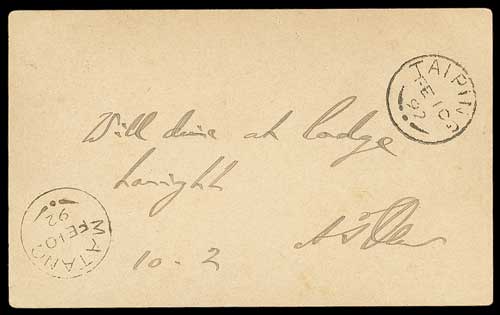 TAIPING
FE 10
92
Will dine at lodge
tonight
10 - 2
MATANG
FE 10
92